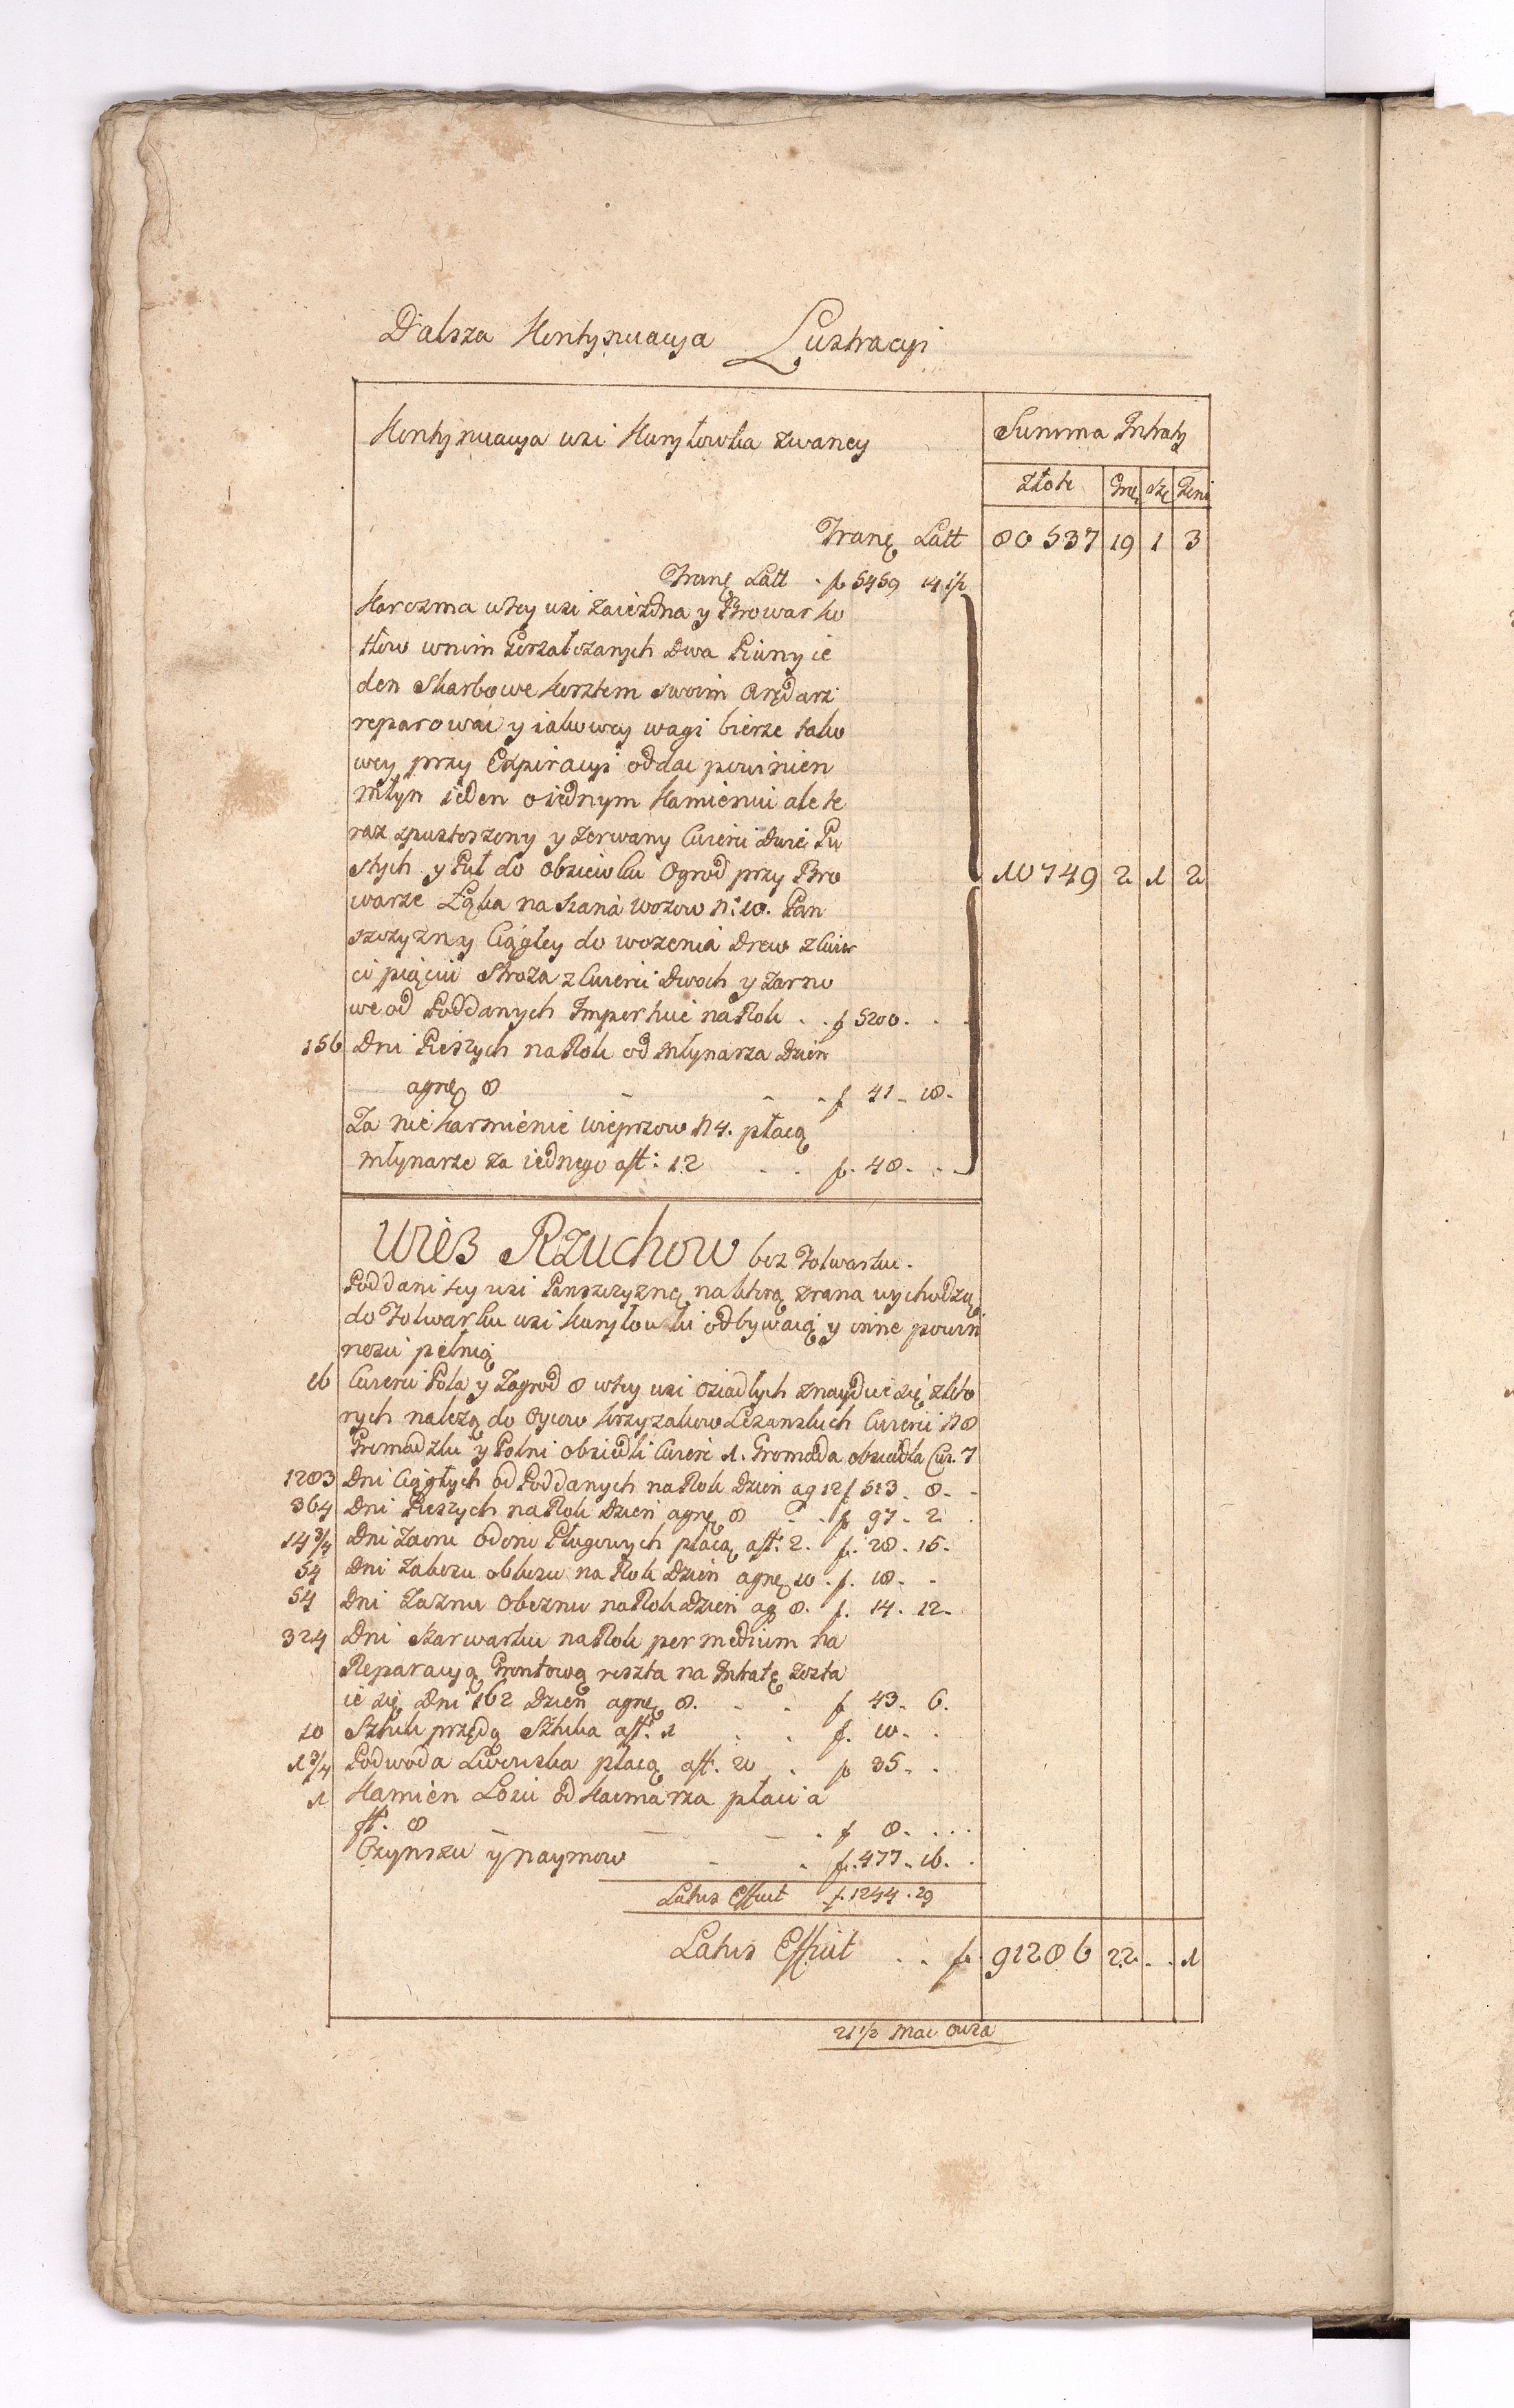 Dalsza Kontynuacya Lustracyi
Kontynuacya wsi Kuryłowka zwaney
Summa Intraty
Złote
Transp Latt 80 537 19 1 3
Transp Latt f 5459 14 1/2
Karczma wtey wsi Zaiezdna y Browar ko
tłow wnim Gorzałczanych Dwa Piwny ie
den Skarbowe kosztem swoim Arędarz
reparowac y iakowey wagi bierze tako
wey przy Expiracyi oddac powinien
Młyn ieden o iednym Kamieniu ale te
raz zpustoszony y zerwany Cwierci Dwie Pu
stych y Puł do obsiewku Ogrod przy Bro
10749 2 1 2
warze Łąka na siana wozow No 10. Pan
szczyzny Ciągłey do wozenia Drew z Cwier
ci pięciu Stroza z Cwierci Dwoch y Zarno
we od Poddanych Importuie na Rok . . f 5200 . .
156 Dni Pieszych na Rok od Młynarza Dzien
agrę 8 - - - f 41 - 18 -
Za nie karmienie wieprzow N 4. płacą
Młynarze za iednego aff: 12 . . f. 48 - . -
Wies Rzuchow bez Folwarku.
Poddani tey wsi Panszczyznę na ktorą zrana wychodzą
do Folwarku wsi Kuryłowki odbywaią y inne powin
nosci pełnią
16 Cwierci Pola y Zagrod 8 wtey wsi osiadłych znayduie się z kto
rych nalezą do Oycow Krzyzakow Lezanskich Cwierci N 8
Gromadzki y Polni obsiedli Cwierc 1. Gromada obsiadła Cwr. 7
1283 Dni Ciągłych od Poddanych na Rok Dzien ag 12 f 513 - 8 - -
364 Dni Pieszych na Rok Dzien agrę 8 - . f 97 - 2 .
14 3/4 Dni Zaoru Odoru Pługowych płacą aff: 2. f. 28 - 15 -
54 Dni Zakozu obkozu na Rok Dzien agrę 10 . f. 18 - -
54 Dni Zaznu Obeznu na Rok Dzien ag 8. f. 14 - 12 -
324 Dni Szarwarku na Rok per medium na
Reparacyą Grontową reszta na Intratę zosta
ie się Dni 162 Dzien agrę 8. - . f 43 - 6.
10 Sztuk przędą Sztuka aff. 1 . . f. 10 - .
1 3/4 Podwoda Lwowska płacą aff. 20 . f 35 - .
1 Kamien Łoiu od Kaczmarza płaci a
ff. 8 - - - . f 8 - . . .
Czynszu y naymow - . f. 477 - 16 - .
Latus Efficit f. 1244 - 29
Latus Efficit . . f. 91286 22 . . 1